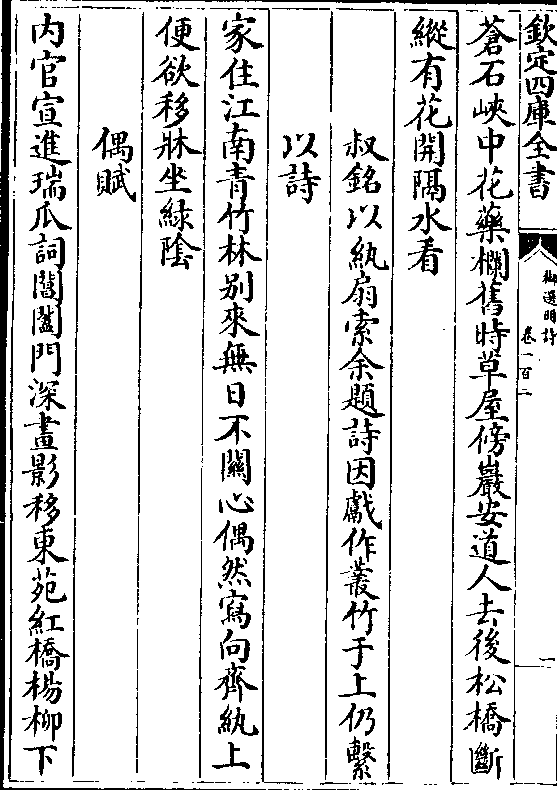 欽定四庫全書
御選明詩
卷一百二
一
蒼石峽中花藥欄舊時草屋傍巖安道人去後松橋斷
縱有花開隔水看
叔銘以紈扇索余題詩因戲作叢竹于上仍繫
以詩
家住江南青竹林别來無日不關心偶然寫向齊紈上
便欲移牀坐緑隂
偶賦
内官宣進瑞瓜詞閶闔門深晝影移東苑紅橋楊柳下